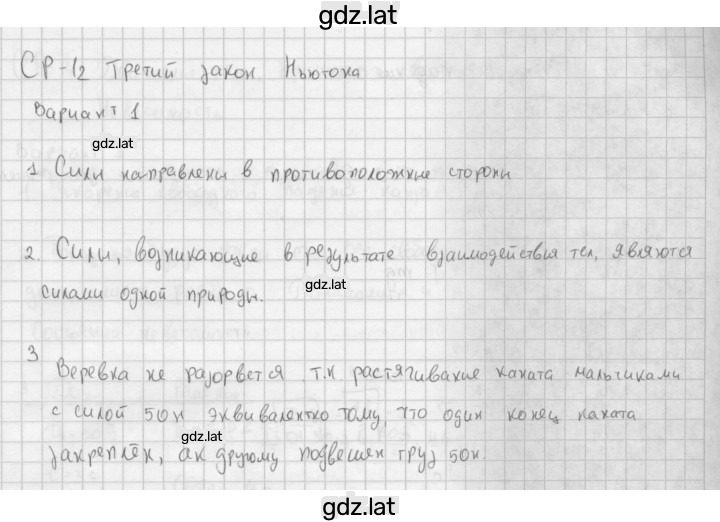 gdz.lat
СР-12 Третий закон Ньютона
Вариант 1
gdz.lat
1 Силы направлены в противоположные стороны
2. Силы, возникающие в результате взаимодействия тел, являются
gdz.lat
силами одной природы.
3
Веревка не разорвется т.к. растягивание каната мальчиками
с силой 50н эквивалентно тому, что один конец каната
gdz.lat
закреплён, ак другому подвешен груз 50н.
gdz.lat